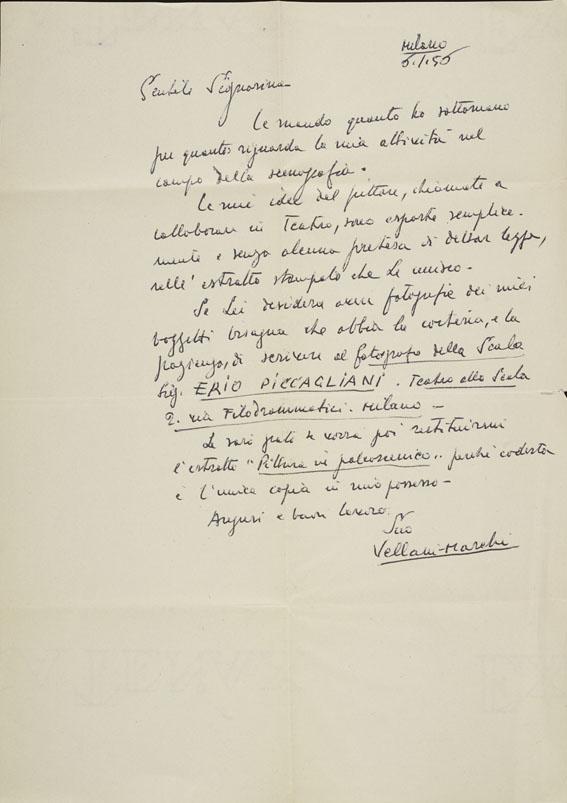 Milano
5.1.55
Gentile Signorina
Le mando quanto ho sottomano
per quanto riguarda la mia attività nel
campo della scenografia.
Le mie idee del pittore, chiamato a
collaborare in Teatro, sono esposte semplice-
mente e senza alcuna pretesa di dettar legge,
nell'estratto stampato che Le unisco-
Se Lei desidera aver fotografie dei miei
bozzetti bisogna che abbia la cortesia, e la
pazienza, di scrivere al fotografo della Scala
Sig. ERIO PICCAGLIANI. Teatro alla Scala
2. via Filodrammatici. Milano-
Le sarò grato se vorrà poi restituirmi
l'estratto "Pittura in palcoscenico" perché codesta
è l'unica copia in mio possesso-
Auguri e buon lavoro.
Suo
Vellani-Marchi